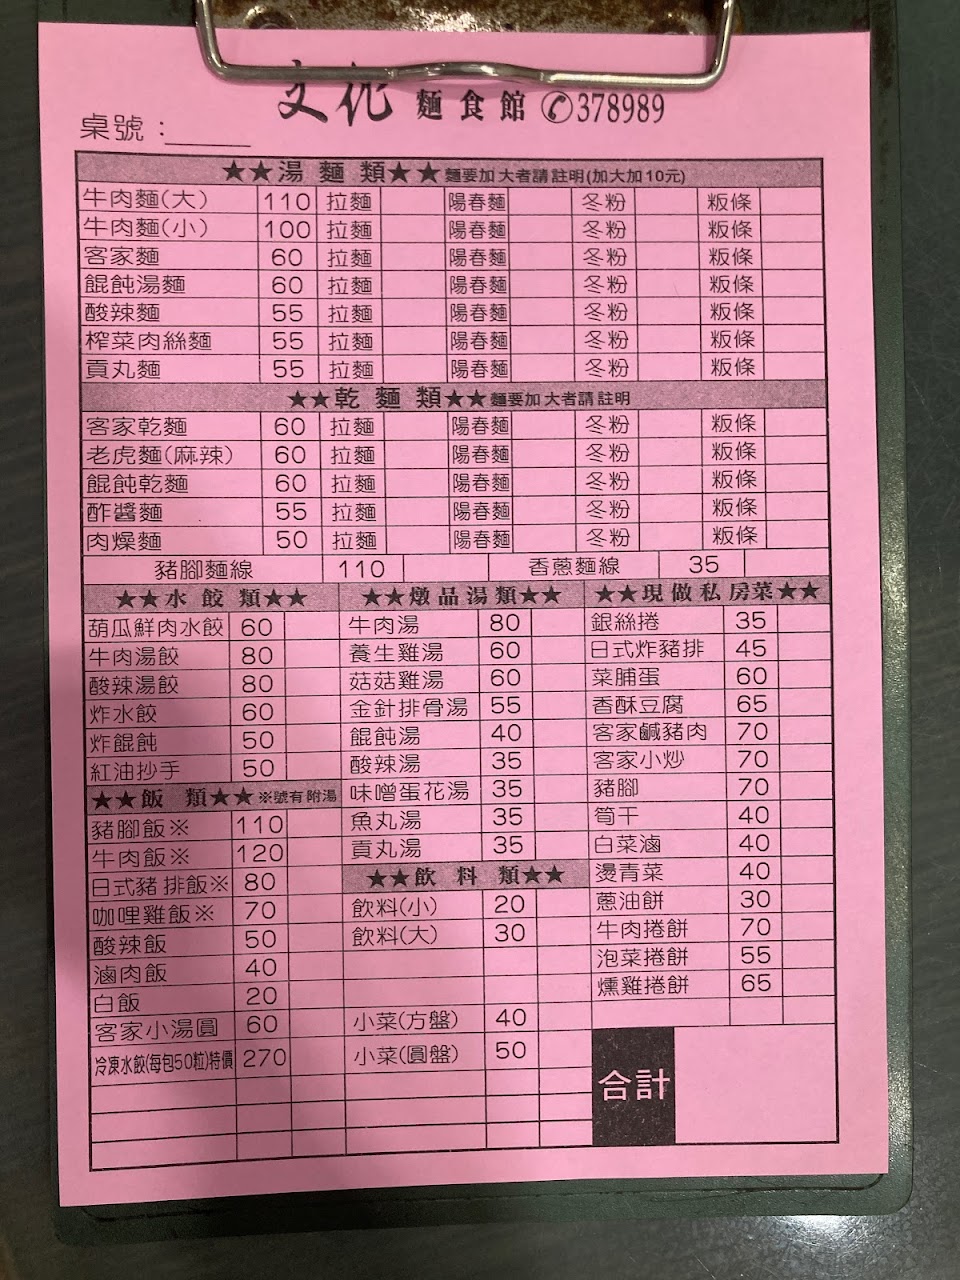 文化 麵食館 ✆378989
桌號：
★★湯 麵 類★★麵要加大者請註明(加大加10元)
牛肉麵(大) 110 拉麵 陽春麵 冬粉 粄條
牛肉麵(小) 100 拉麵 陽春麵 冬粉 粄條
客家麵 60 拉麵 陽春麵 冬粉 粄條
餛飩湯麵 60 拉麵 陽春麵 冬粉 粄條
酸辣麵 55 拉麵 陽春麵 冬粉 粄條
榨菜肉絲麵 55 拉麵 陽春麵 冬粉 粄條
貢丸麵 55 拉麵 陽春麵 冬粉 粄條
★★乾 麵 類★★麵要加大者請註明
客家乾麵 60 拉麵 陽春麵 冬粉 粄條
老虎麵(麻辣) 60 拉麵 陽春麵 冬粉 粄條
餛飩乾麵 60 拉麵 陽春麵 冬粉 粄條
酢醬麵 55 拉麵 陽春麵 冬粉 粄條
肉燥麵 50 拉麵 陽春麵 冬粉 粄條
豬腳麵線 110 香蔥麵線 35
★★水 餃 類★★
葫瓜鮮肉水餃 60
牛肉湯餃 80
酸辣湯餃 80
炸水餃 60
炸餛飩 50
紅油抄手 50
★★飯 類★★※號有附湯
豬腳飯※ 110
牛肉飯※ 120
日式豬排飯※ 80
咖哩雞飯※ 70
酸辣飯 50
滷肉飯 40
白飯 20
客家小湯圓 60
冷凍水餃(每包50粒)特價 270
★★燉品湯類★★
牛肉湯 80
養生雞湯 60
菇菇雞湯 60
金針排骨湯 55
餛飩湯 40
酸辣湯 35
味噌蛋花湯 35
魚丸湯 35
貢丸湯 35
★★飲 料 類★★
飲料(小) 20
飲料(大) 30
小菜(方盤) 40
小菜(圓盤) 50
★★現做私房菜★★
銀絲捲 35
日式炸豬排 45
菜脯蛋 60
香酥豆腐 65
客家鹹豬肉 70
客家小炒 70
豬腳 70
筍干 40
白菜滷 40
燙青菜 40
蔥油餅 30
牛肉捲餅 70
泡菜捲餅 55
燻雞捲餅 65
合計